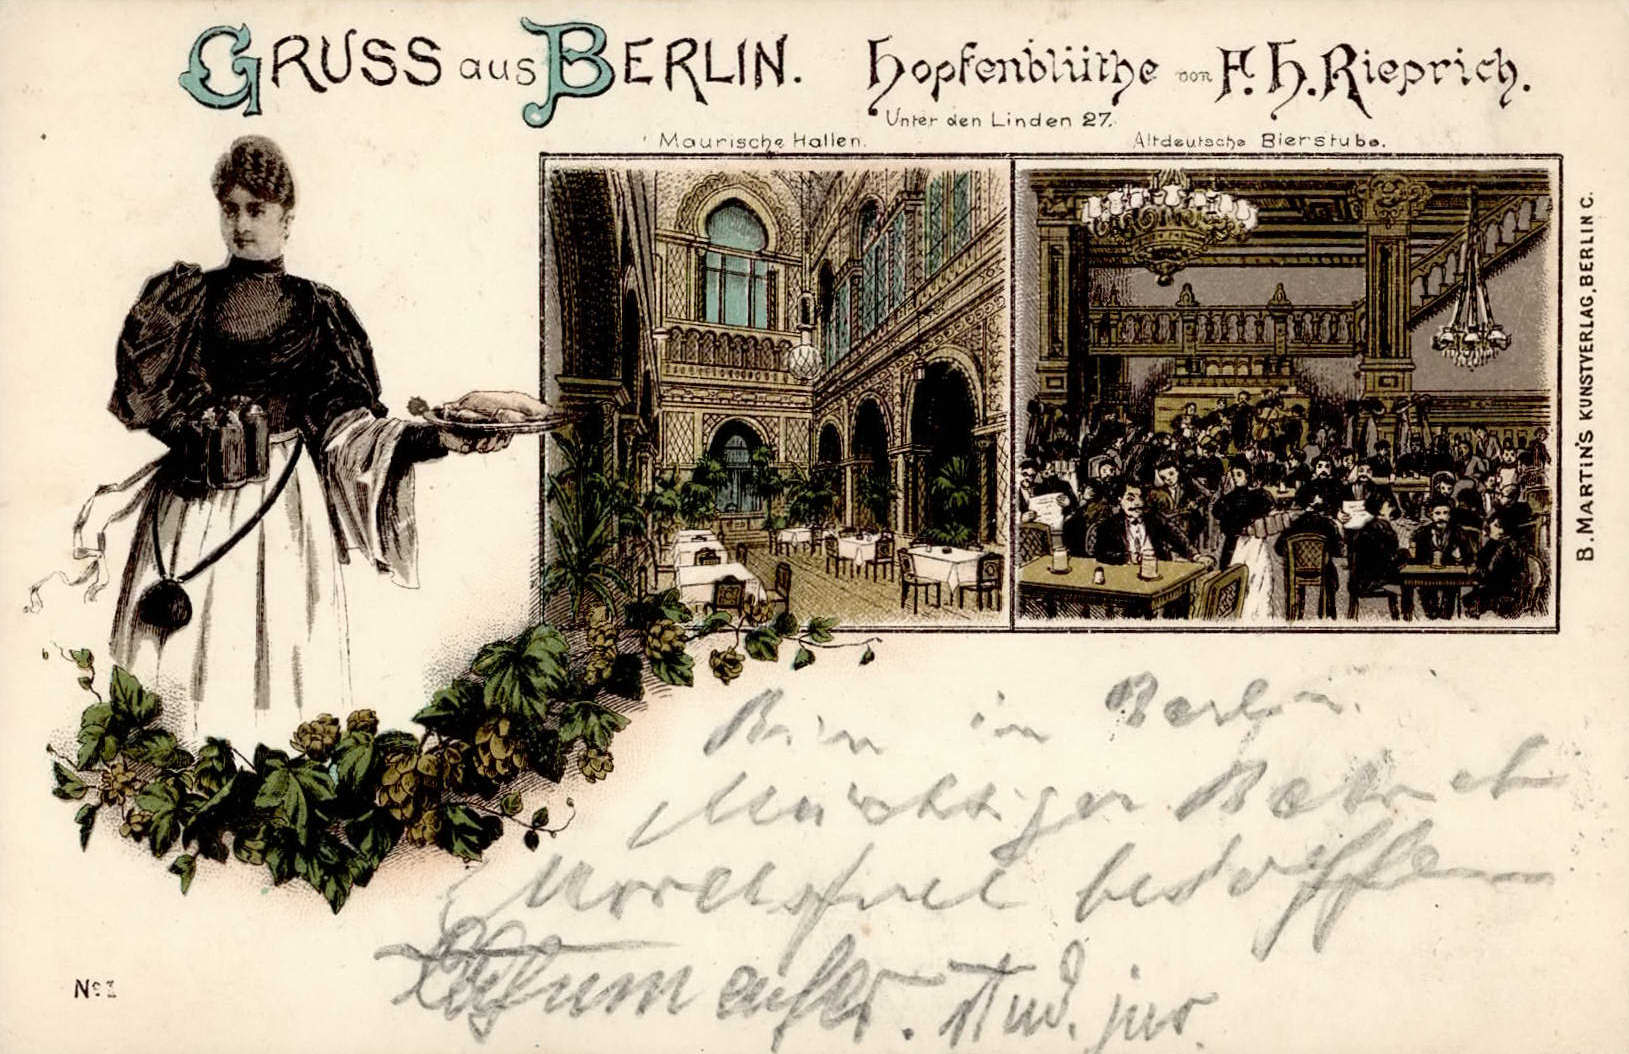 GRUSS aus BERLIN.
Hopfenblüthe von F. H. Rieprich.
Unter den Linden 27.
Maurische Hallen.
Altdeutsche Bierstube.
B. MARTIN'S KUNSTVERLAG, BERLIN C.
Bin in Berlin.
Mächtiger Betrieb
besoffen
stud. jur.
No 1